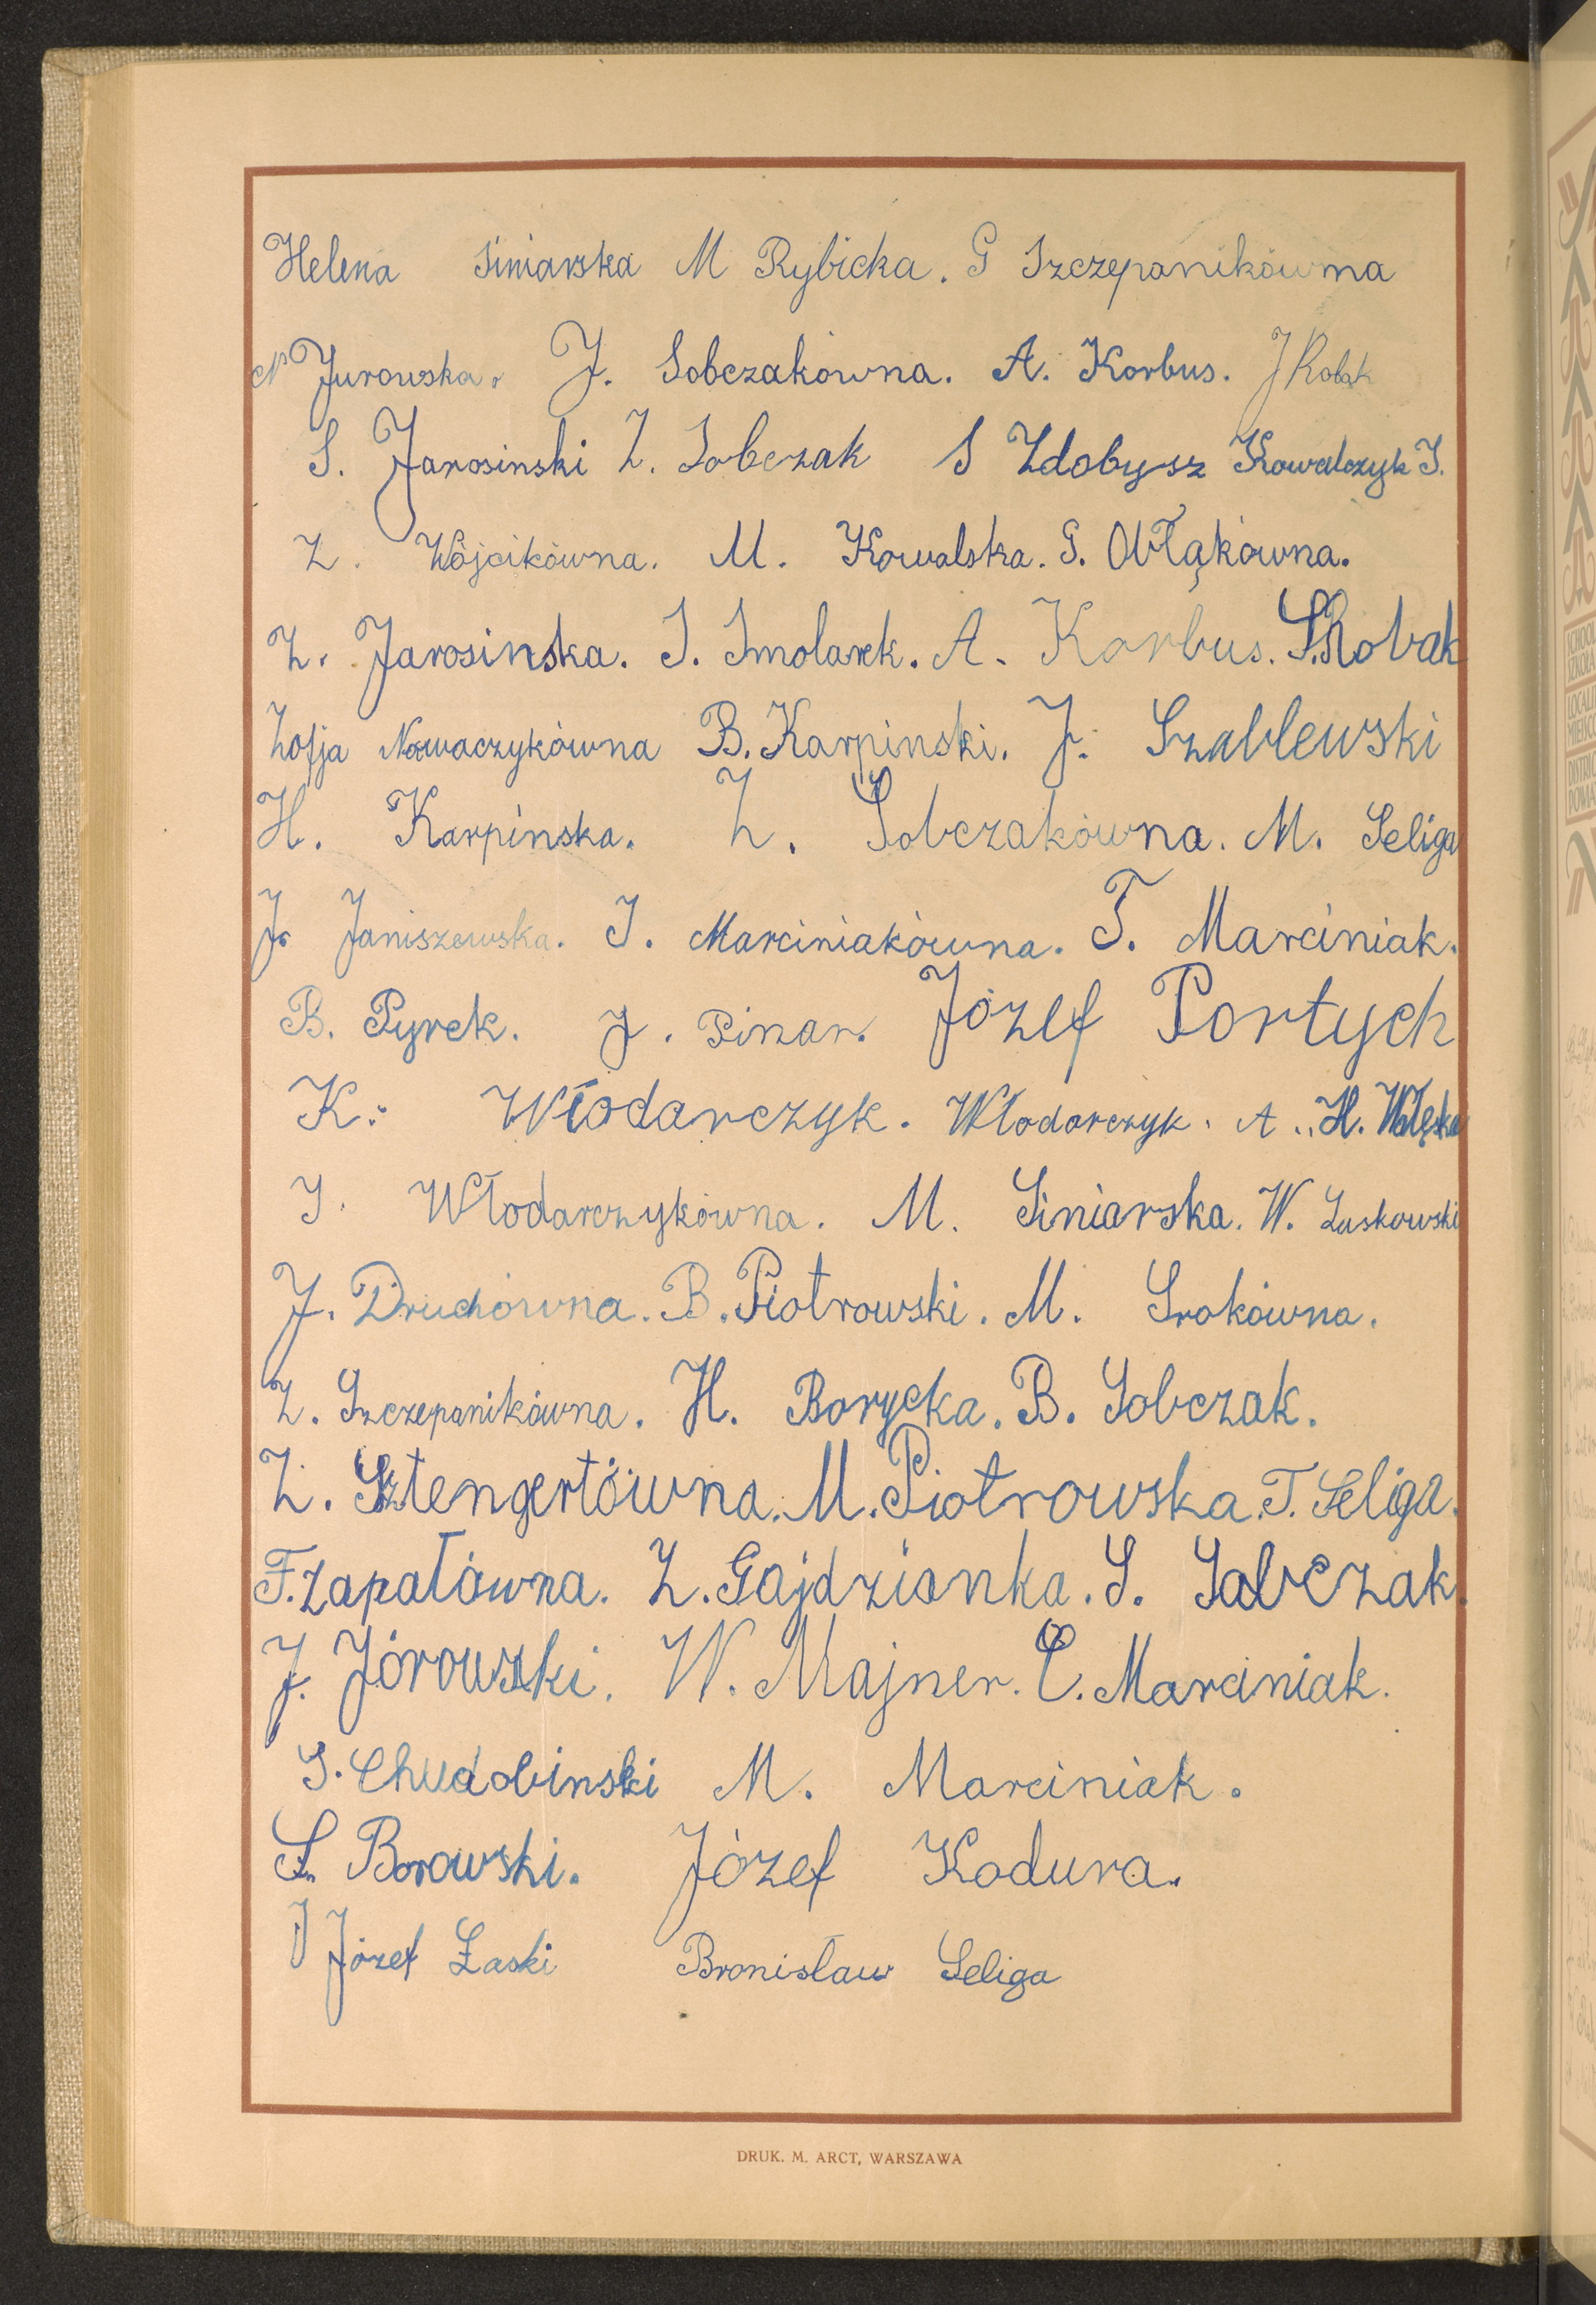 Helena Siniarska M Rybicka. G Szczepanikówna
N Jurowska. J. Sobczakówna. A. Korbus. J Robak
S. Jarosinski Z. Sobczak S Zdobysz Kowalczyk J.
Z. Wójcikówna. M. Kowalska. G. Obłąkówna.
Z. Jarosinska. S. Smolarek. A. Korbus. S. Robak
Zofja Nowaczykówna B. Karpinski. J. Szablewski
H. Karpinska. Z. Sobczakówna. M. Seliga
J. Janiszewska. J. Marciniakówna. T. Marciniak.
B. Pyrek. J. Pinar. Józef Portych
K. Włodarczyk. Włodarczyk. A. H.
J. Włodarczykówna. M. Siniarska. W. Luskowski
J. Druchówna. B. Piotrowski. M. Srokówna.
Z. Szczepanikówna. H. Borycka. B. Sobczak.
Z. Sztengertówna. M. Piotrowska. T. Seliga.
F. Zapałówna. Z. Gajdzianka. S. Sobczak.
J. Jórowski. W. Majner. C. Marciniak.
S. Chudobinski M. Marciniak.
S. Borowski. Józef Kodura.
Józef Łaski Bronisław Seliga
DRUK. M. ARCT, WARSZAWA
SCHOOL
SZKOŁA